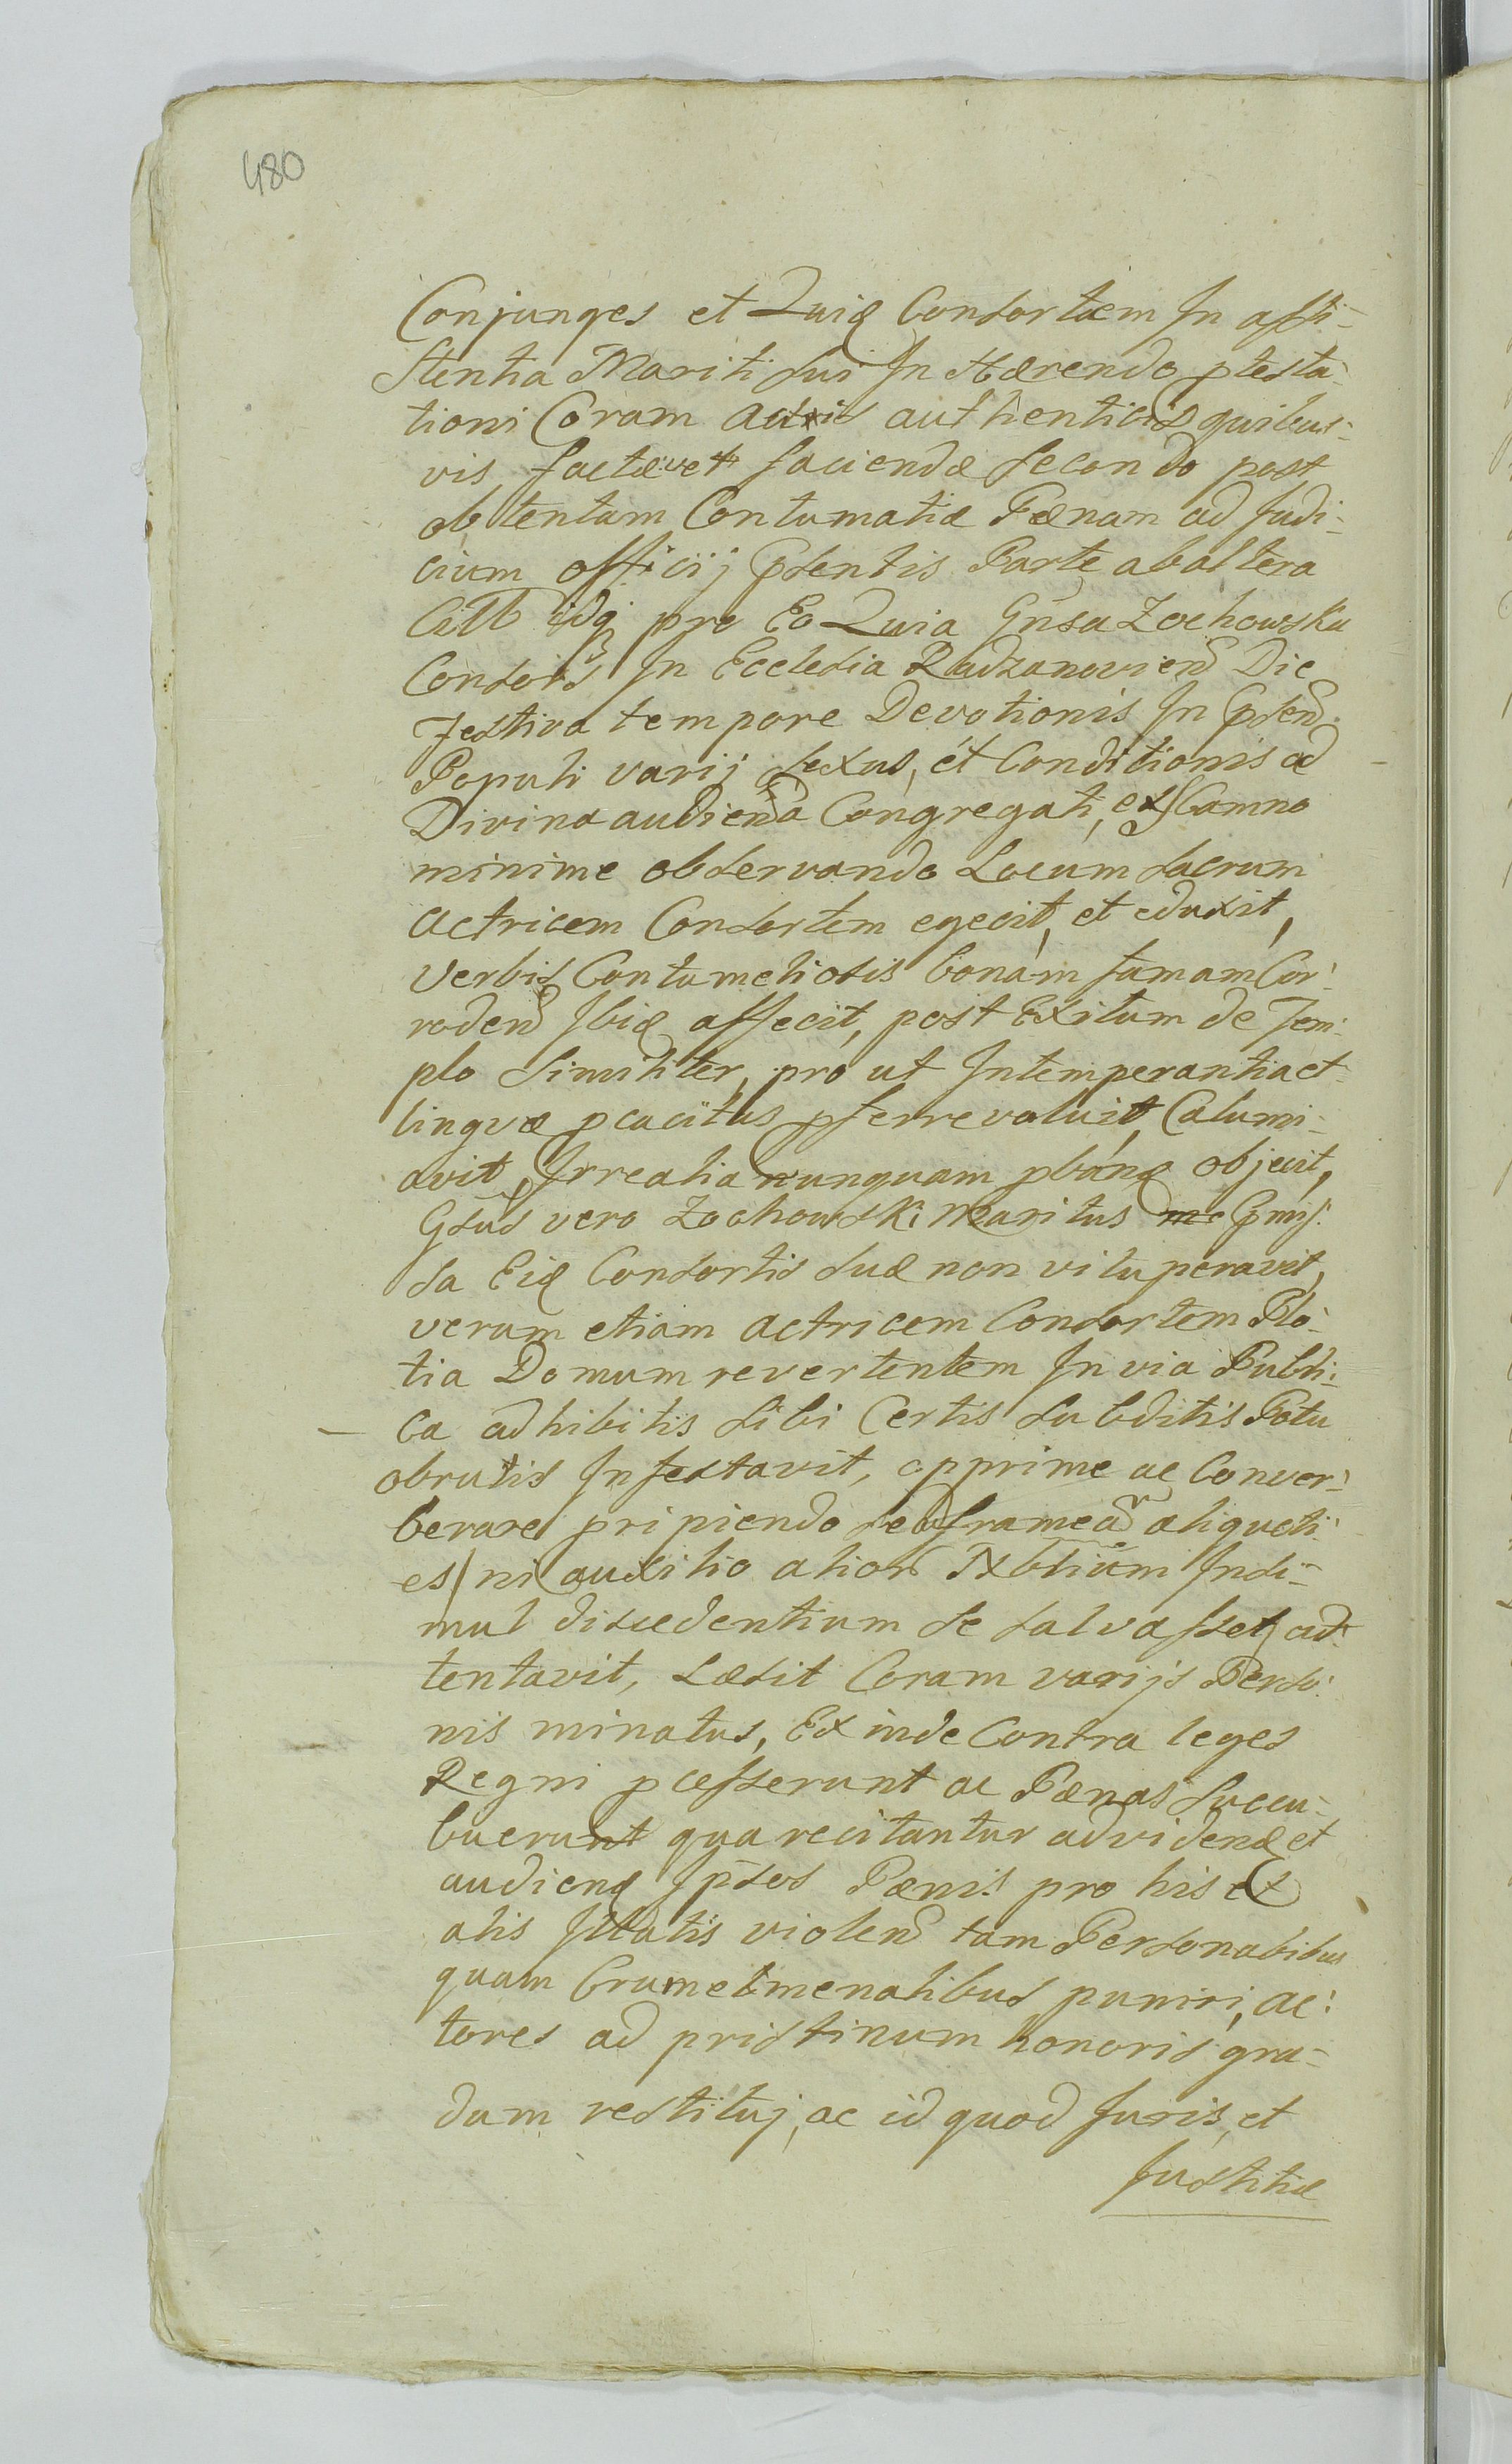 480
Conjunges et Quid Consortem In assi-
stentia Mariti sui In Hærendo ptesta-
tioni Coram Actis authenticis quibus-
vis factæ vel faciendæ secondo post
obtentam Contumatiæ Pænam ad Judi-
cium officij Pdsentis Parte ab altera
Citt idq pro Eo Quia Gnsa Zochowska
Consors In Ecclesia Radzanoviend Die
Festiva tempore Devotionis In Psend
Populi varij sexus, et Conditionis ad
Divina audienda Congregati, ex Scamno
minime observando Locum sacrum
Actricem Consortem egecit, et eduxit,
verbis Contumeliosis bonam famam Cor-
rodend Ibiq affecit, post Exitum de Tem-
plo Similiter, pro ut Intemperantia et
lingvæ pcacitas pferre voluit, Calumi-
avit, Irrealia nunquam pbanda objecit,
Gsus vero Zochowski Maritus Pmis-
sa Eiq Consortis suæ non vituperavit,
verum etiam Actricem Consortem Plo-
tia Domum revertentem In via Publi-
ca adhibitis sibi Certis subditis Potu
obrutis Infestavit, opprime ac Conver-
berare pripiendo se ad frameam aliquoti-
es/ni auxilio alior Nbilium Insi-
mul discedentium se salvasset/ad-
tentavit, Læsit Coram varijs Perso-
nis minatus, Exinde Contra leges
Regni pcesserunt ac Pænas succu-
buerunt qua recitantur ad vidend et
audiend Ipsos Pænis pro his et
alis Illatis violend tam Personalibus
quam Crumelmenalibus puniri, ac-
tores ad pristinum honoris gra-
dum restituj, ac id quod Juris, et
Justitiæ